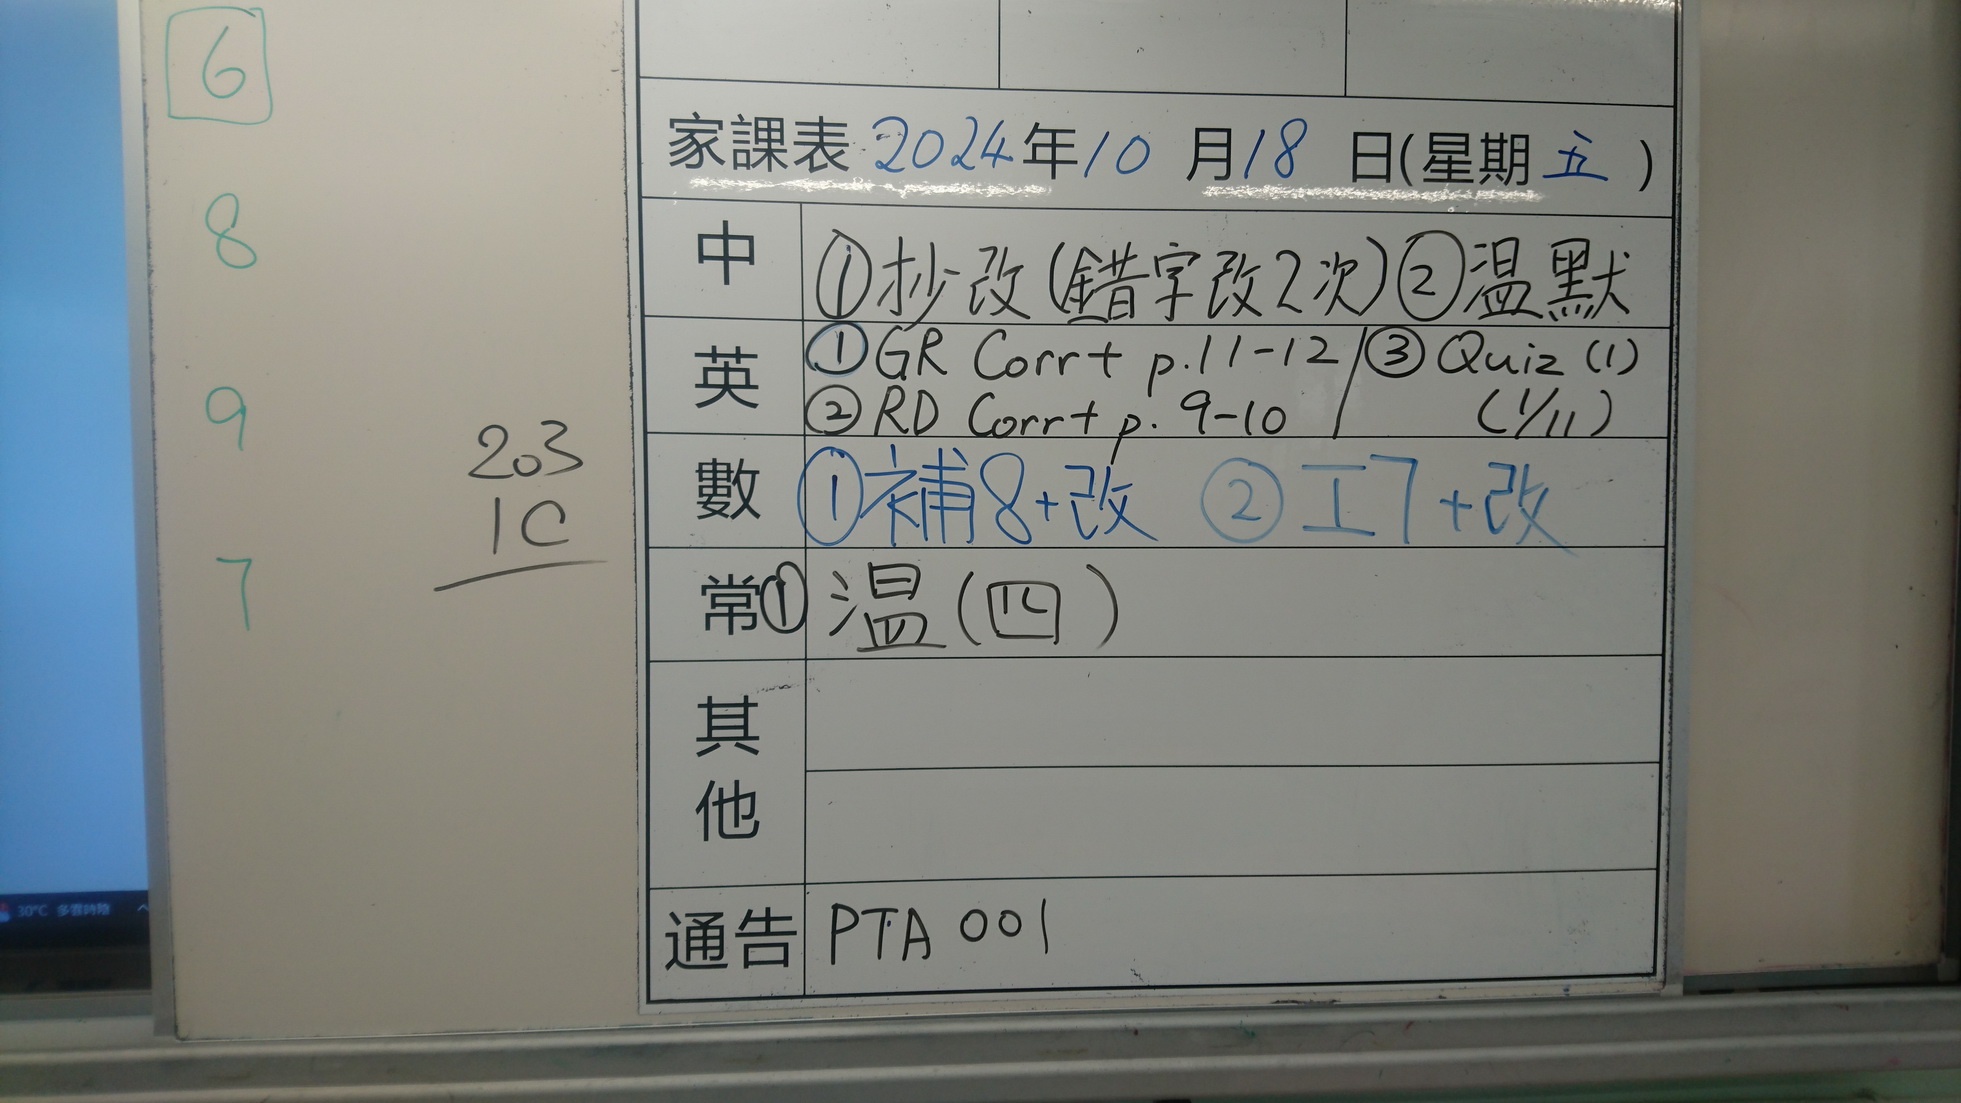 6
8
9
7
203
1C
家課表 2024年10月18日(星期五)
中 ①抄改(錯字改2次)②温默
英 ①GR Corr+ p.11-12 / ③ Quiz (1)
②RD Corr+ p. 9-10 (1/11)
數 ①補8+改 ②工7+改
常 ①温(四)
其他
通告 PTA 001
30°C 多雲時陰